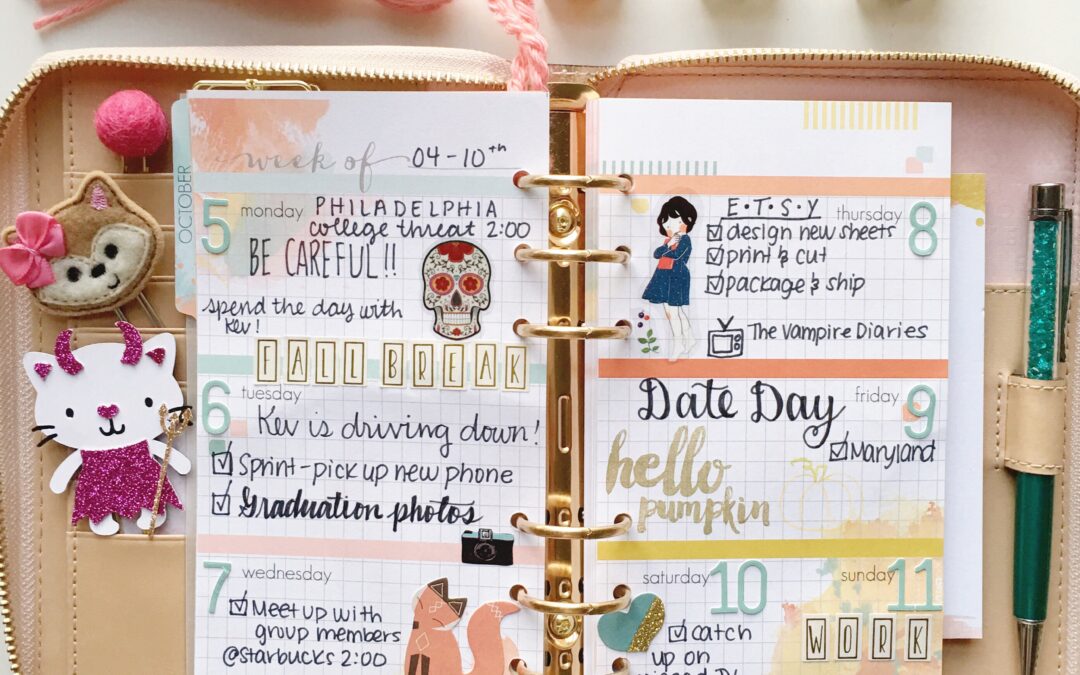 OCTOBER
week of 04-10th
5 monday PHILADELPHIA
college threat 2:00
BE CAREFUL!!
spend the day with
Kev!
FALL BREAK
6 tuesday
Kev is driving down!
Sprint-pick up new phone
Graduation photos
7 wednesday
Meet up with
group members
@starbucks 2:00
E·T·S·Y thursday 8
design new sheets
print & cut
package & ship
The Vampire Diaries
Date Day friday 9
Maryland
hello
pumpkin
saturday 10
catch
up on
sunday 11
WORK